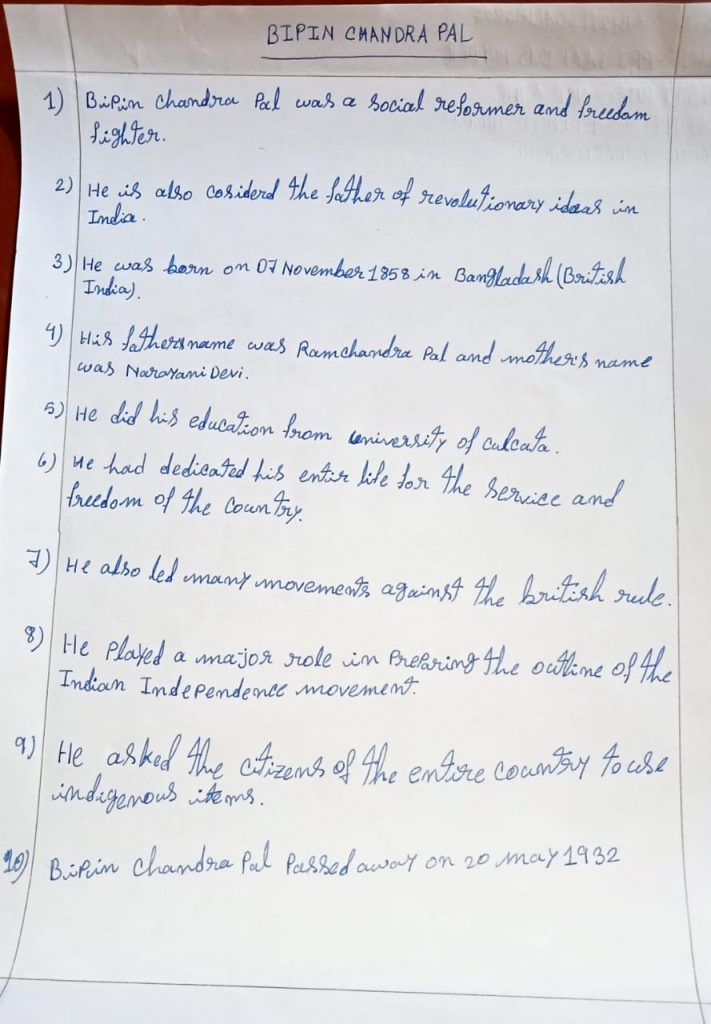 BIPIN CHANDRA PAL
1) Bipin Chandra Pal was a social reformer and freedom
fighter.
2) He is also cosiderd the father of revolutionary ideas in
India.
3) He was born on 07 November 1858 in Bangladash (British
India).
4) His fathers name was Ramchandra Pal and mother's name
was Narayani Devi.
5) He did his education from university of calcata.
6) He had dedicated his entir life for the service and
freedom of the country.
7) He also led many movements against the british rule.
8) He Played a major role in Preparing the outline of the
Indian Independence movement.
9) He asked the citizens of the entire country to use
indigenous items.
10) Bipin Chandra Pal Passed away on 20 may 1932